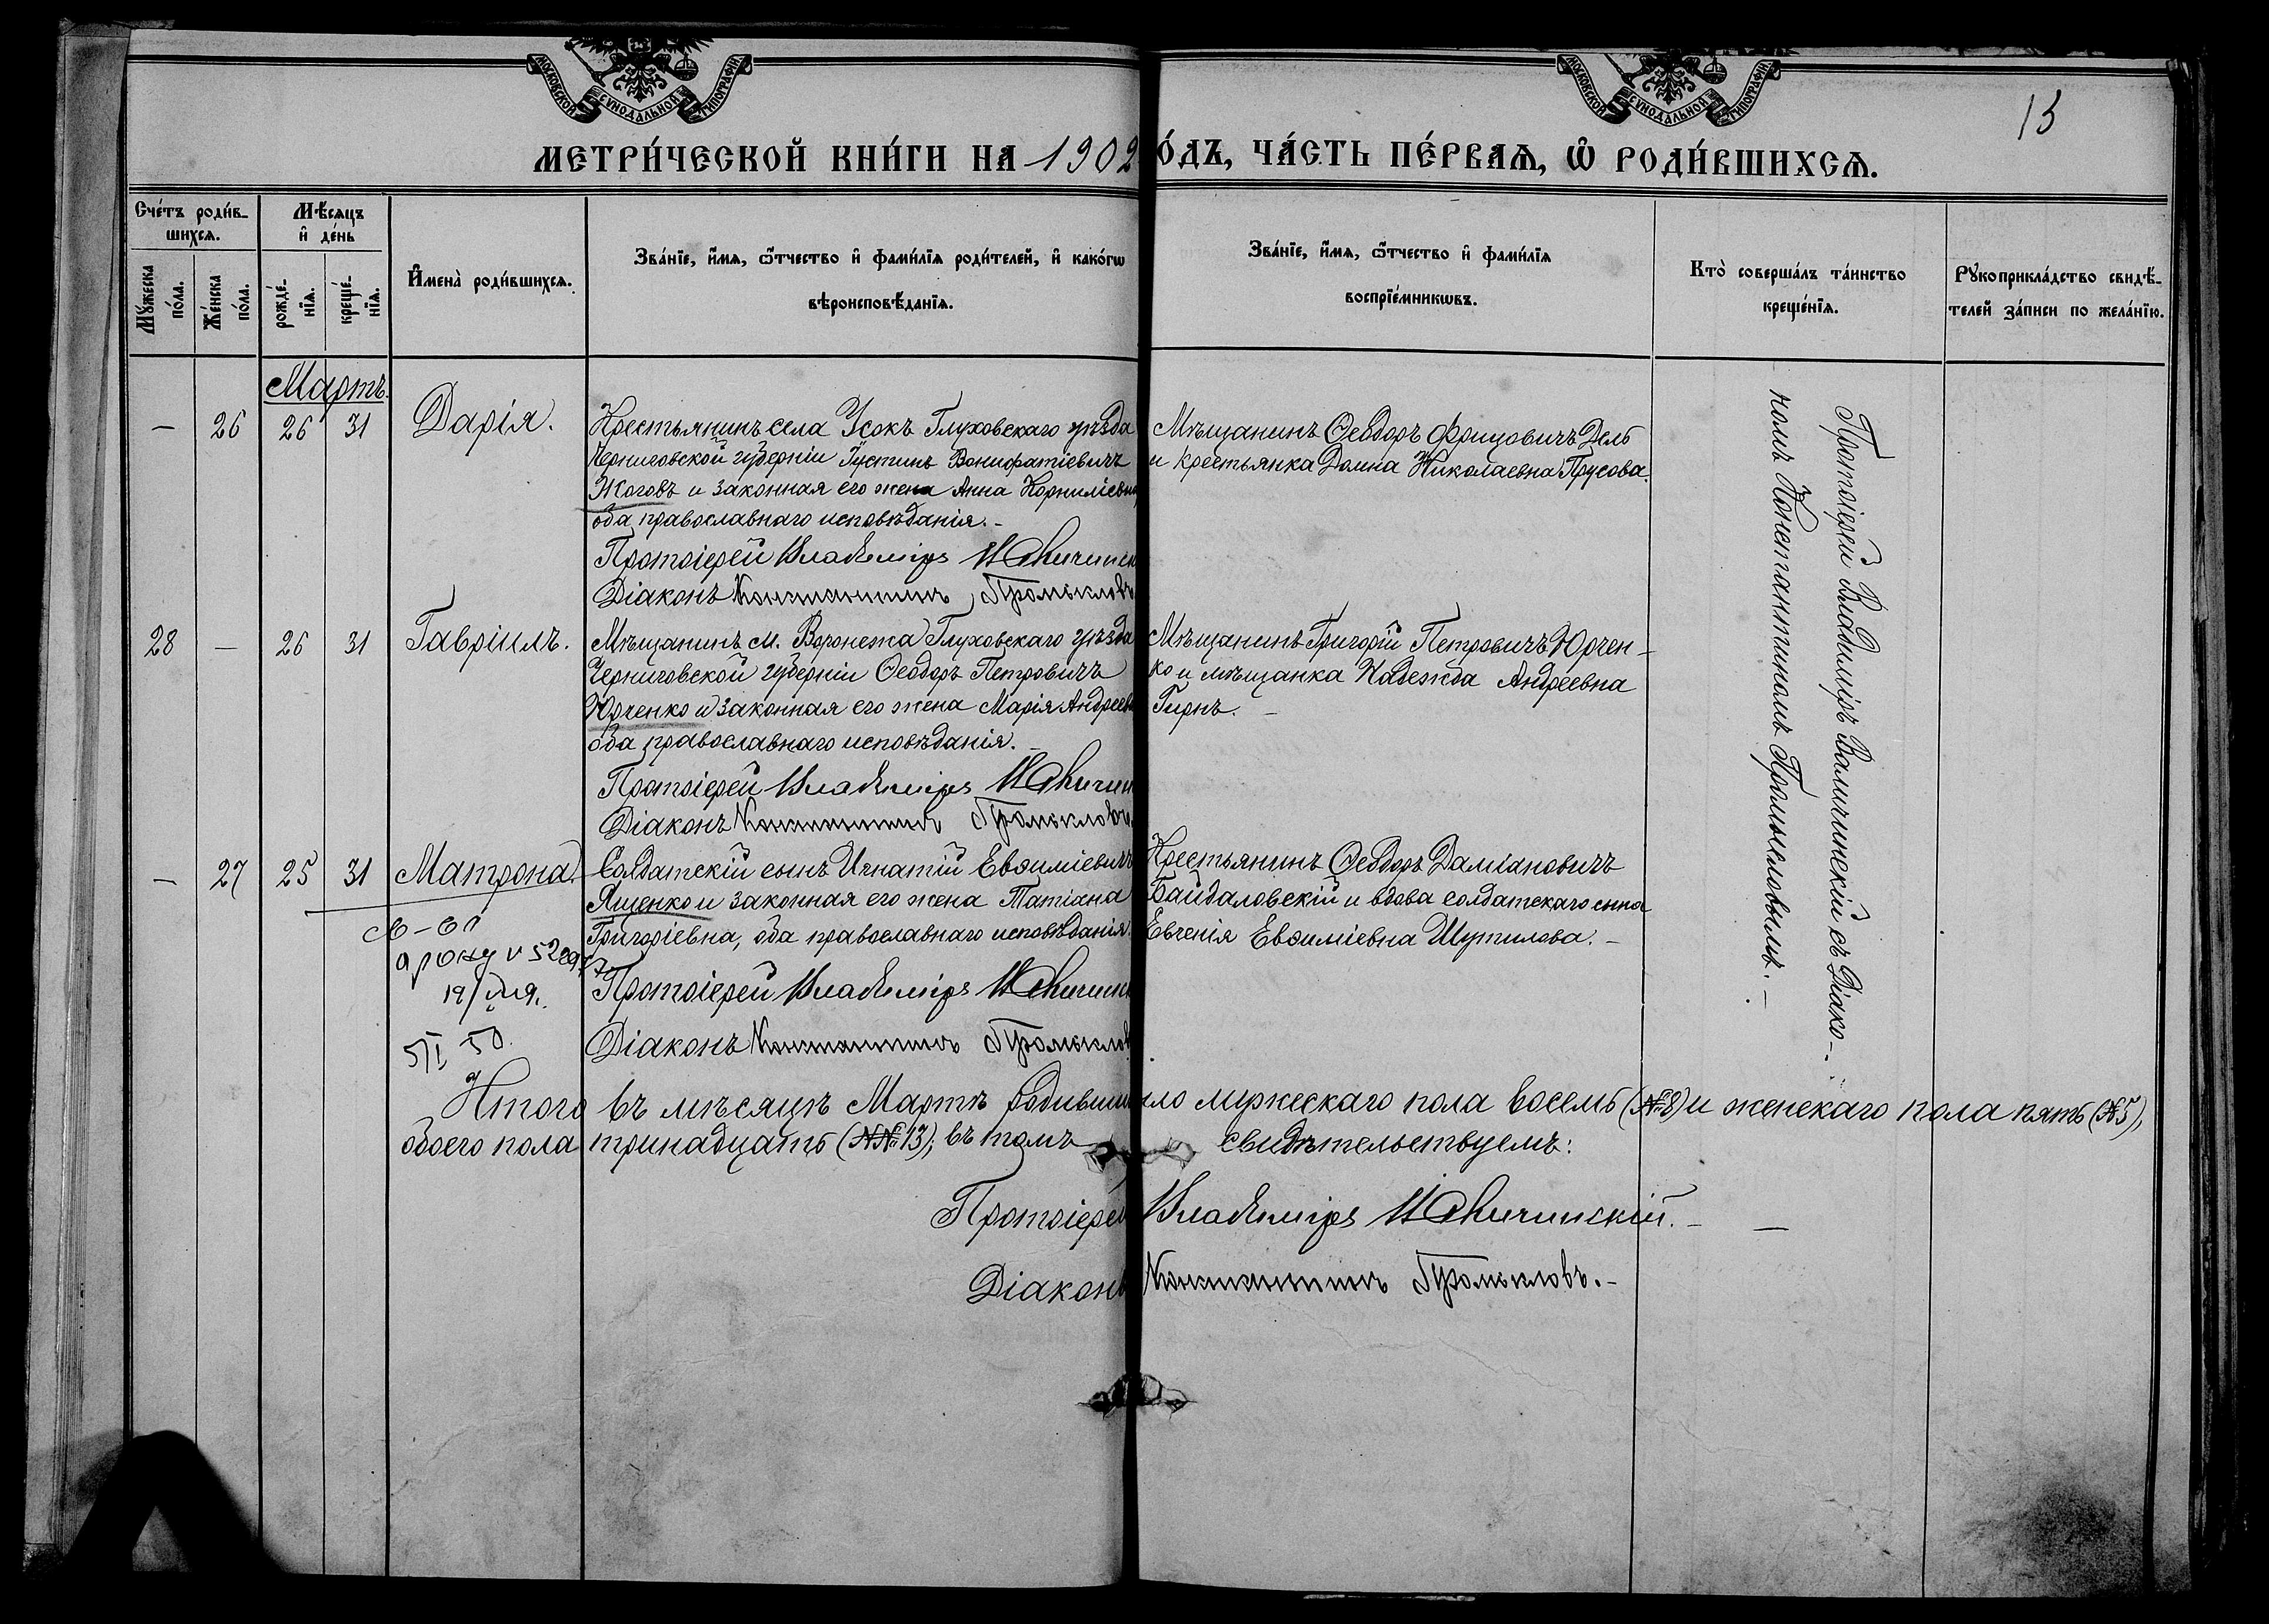 МОСКОВСКОЙ СУНОДАЛЬНОЙ ТИПОГРАФІИ
МОСКОВСКОЙ СУНОДАЛЬНОЙ ТИПОГРАФІИ
13
МЕТРИ́ЧЕСКОЙ КНИ́ГИ НА 1902
О́ДЪ, ЧА́СТЬ ПЕ́РВАѦ, Ѽ РОДИ́ВШИХСѦ.
Сче́тъ роди́в-
шихсѧ.
Мꙋ́жеска
по́ла.
Же́нска
по́ла.
Мѣ́сѧцъ
и҆ де́нь
рожде́-
нїѧ.
креще́-
нїѧ.
И҆мена̀ роди́вшихсѧ.
Зва́нїе, и҆́мѧ, ѻ҆́тчество и҆ фами́лїѧ роди́телей, и҆ како́гѡ
вѣроисповѣ́данїѧ.
Зва́нїе, и҆́мѧ, ѻ҆́тчество и҆ фами́лїѧ
воспрїе́мникѡвъ.
Кто̀ соверша́лъ та́инство
креще́нїѧ.
Рꙋкоприкла́дство свидѣ́-
телей за́писи по жела́нїю.
Мартъ.
— 26 26 31 Дарія.
Крестьянинъ села Усокъ Глуховскаго уѣзда
Черниговской губерніи Густинъ Вонифатіевичъ
Жоговъ и законная его жена Анна Корниліевна
оба православнаго исповѣданія.-
Протоіерей Владиміръ
Діаконъ Константинъ Громыкловъ
Мѣщанинъ Ѳеодоръ Фрицовичъ Дель
и крестьянка Домна Николаевна Прусова.
28 — 26 31 Гавріилъ.
Мѣщанинъ м. Воронежа Глуховскаго уѣзда
Черниговской губерніи Ѳеодоръ Петровичъ
Юрченко и законная его жена Марія Андреевна
оба православнаго исповѣданія.-
Протоіерей Владиміръ
Діаконъ Константинъ Громыкловъ.
Мѣщанинъ Григорій Петровичъ Юрчен-
ко и мѣщанка Надежда Андреевна
Гирнъ. -
— 27 25 31 Матрона.
Солдатскій сынъ Игнатій Евѳиміевичъ
Ященко и законная его жена Татіана
Григоріевна, оба православнаго исповѣданія.
Протоіерей Владиміръ
Діаконъ Константинъ Громыклов
Крестьянинъ Ѳеодоръ Даміановичъ
Байдаловскій и вдова солдатскаго сына
Евгенія Евѳиміевна Шутилова. -
5/I 50.
Протоіерей Владиміръ Валичинскій съ Діако-
номъ Константиномъ Громыкловымъ. -
Итого въ мѣсяцѣ Мартѣ родивши
ло мужескаго пола восемь (№ 8) и женскаго пола пять (№ 5),
обоего пола тринадцать (№№ 13); въ томъ свидѣтельствуемъ:
Протоіерей Владиміръ
Діаконъ Константинъ Громыкловъ. -